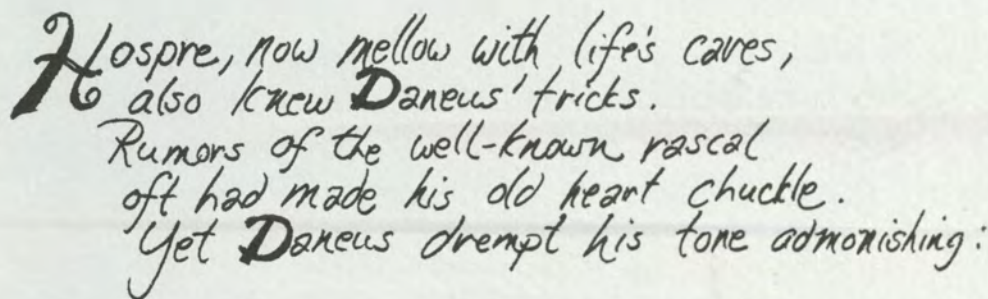 Hospre, now mellow with life's caves,
also knew Daneus' tricks.
Rumors of the well-known rascal
oft had made his old heart chuckle.
Yet Daneus drempt his tone admonishing: